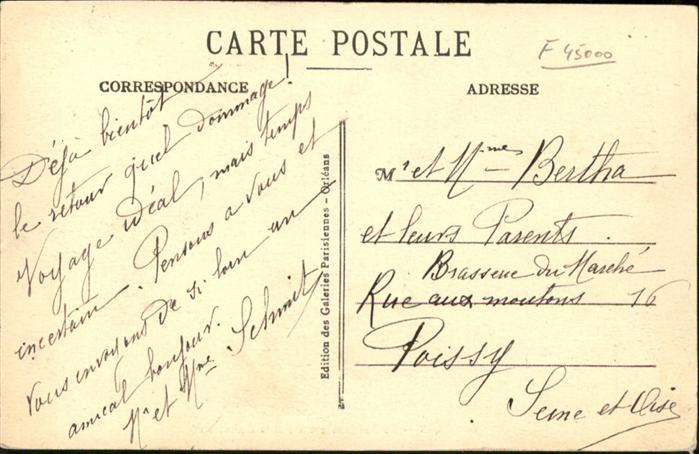 CARTE POSTALE
F 45000
CORRESPONDANCE
ADRESSE
Déjà bientôt
le retour quel dommage!
Voyage idéal, mais temps
incertain. Pensons a vous et
vous envoyons de si loin un
amical bonjour.
Mr et Mme Schmit
Edition des Galeries Parisiennes – Orléans
Mr et Mme Bertha
et leurs Parents.
Brasserie du Marché
Rue aux moutons 16
Poissy
Seine et Oise